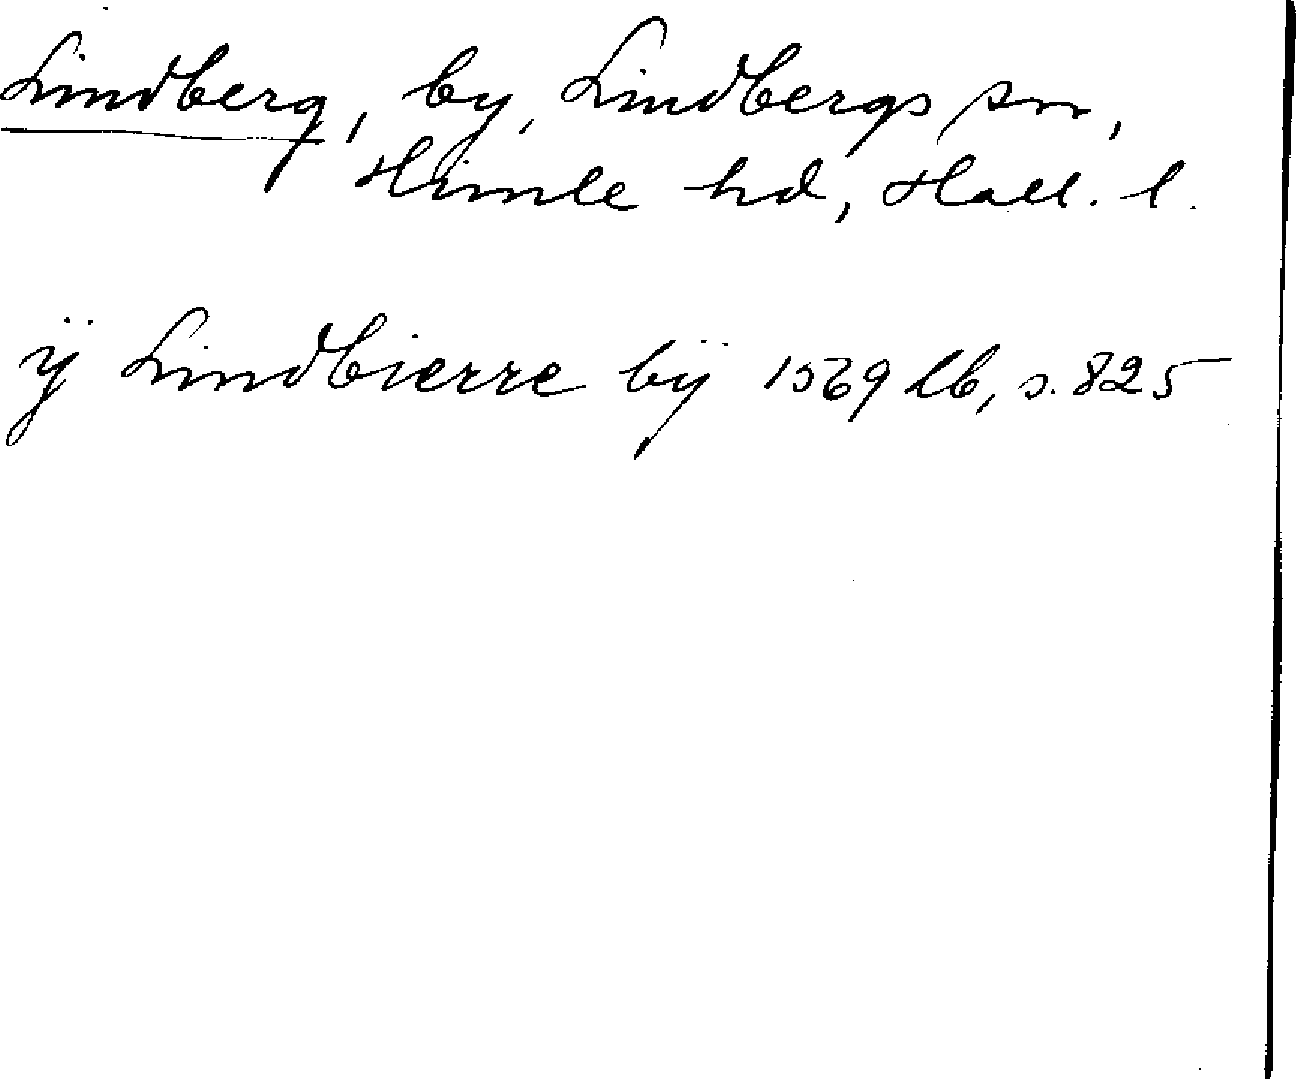 Lindberg, by, Lindbergs sn,
Himle hd, Hall. l.
ÿ Lindbierre bÿ 1569 lb, s. 825